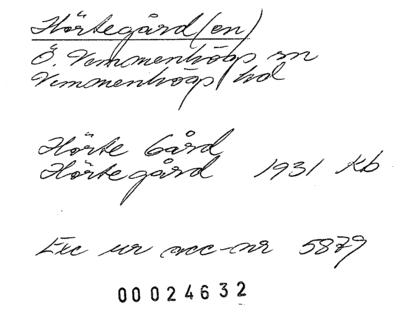 Hörtegård(en)
Ö. Vemmenhögs sn
Vemmenhögs hd
Hörte Gård
Hörtegård 1931 Kb
Exc ur acc-nr 5879
00024632